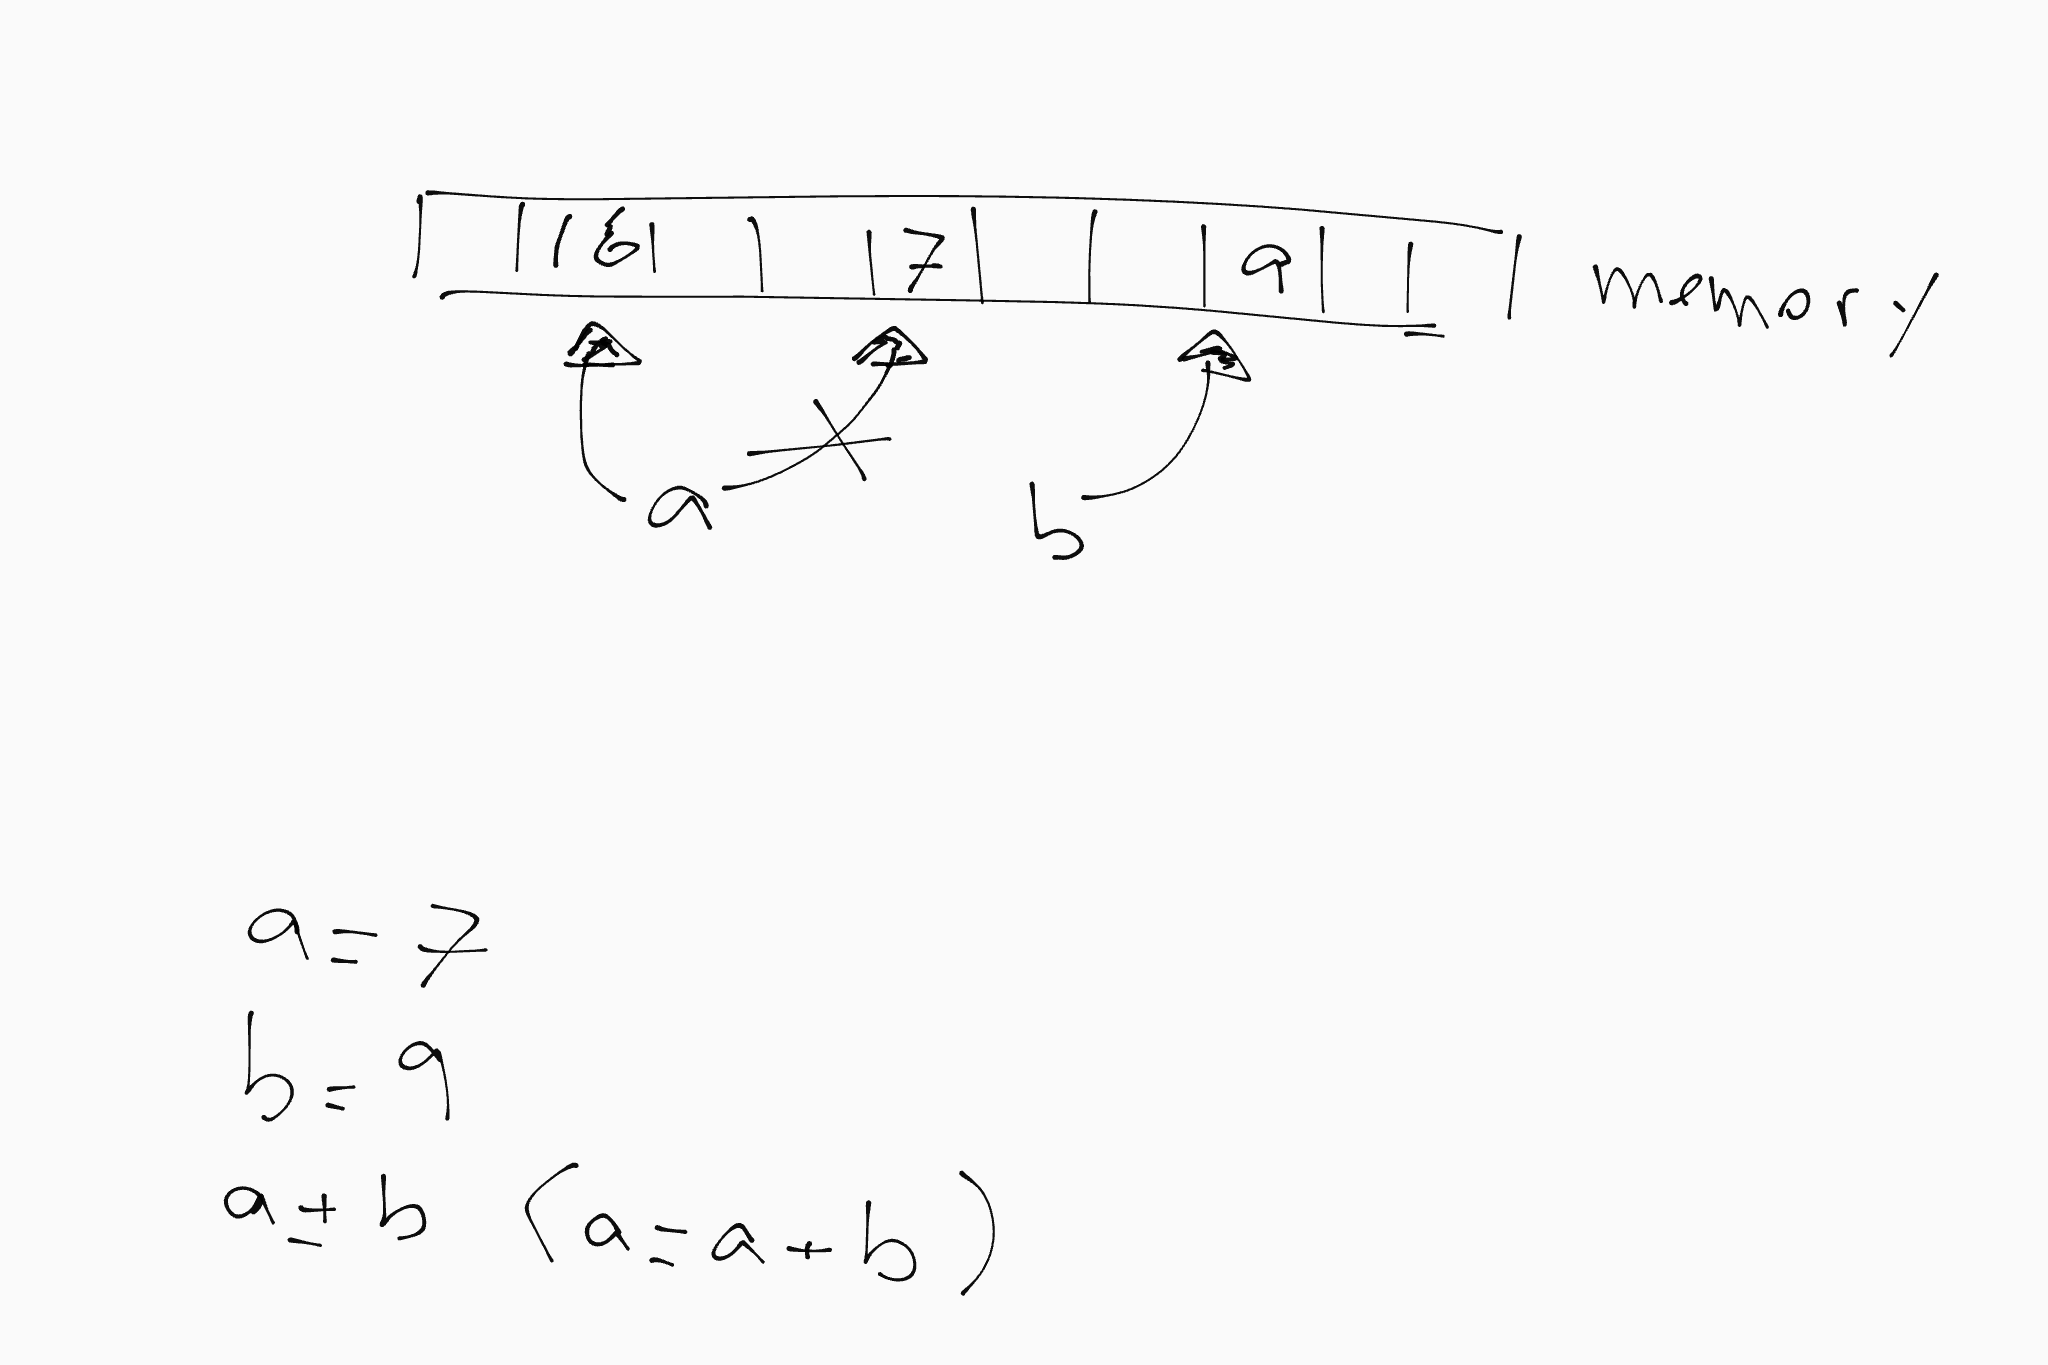 16 7 9 memory
a b
a = 7
b = 9
a ± b (a = a + b)